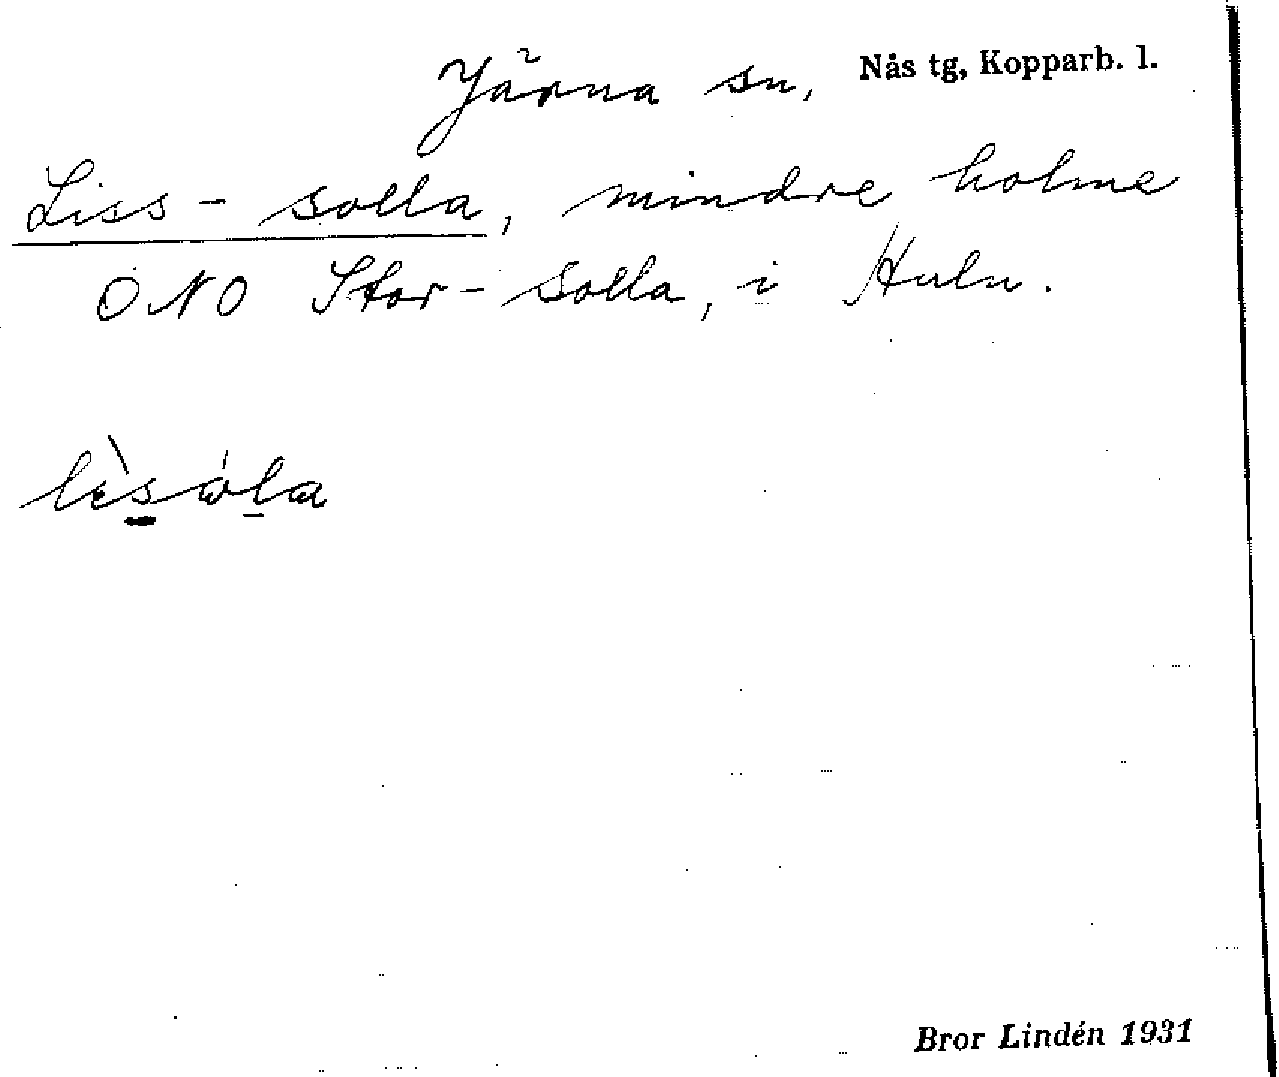 Järna sn, Nås tg, Kopparb. l.
Liss-solla, mindre holme
ONO Stor-solla, i Huln.
lìsóla
Bror Lindén 1931